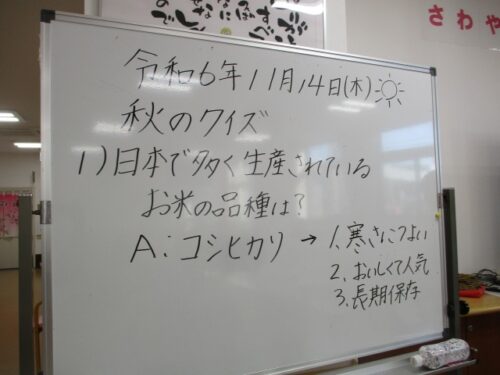 さわや
令和6年11月14日(木)
秋のクイズ
1)日本で多く生産されている
お米の品種は?
A:コシヒカリ→1.寒さにつよい
2.おいしくて人気
3.長期保存